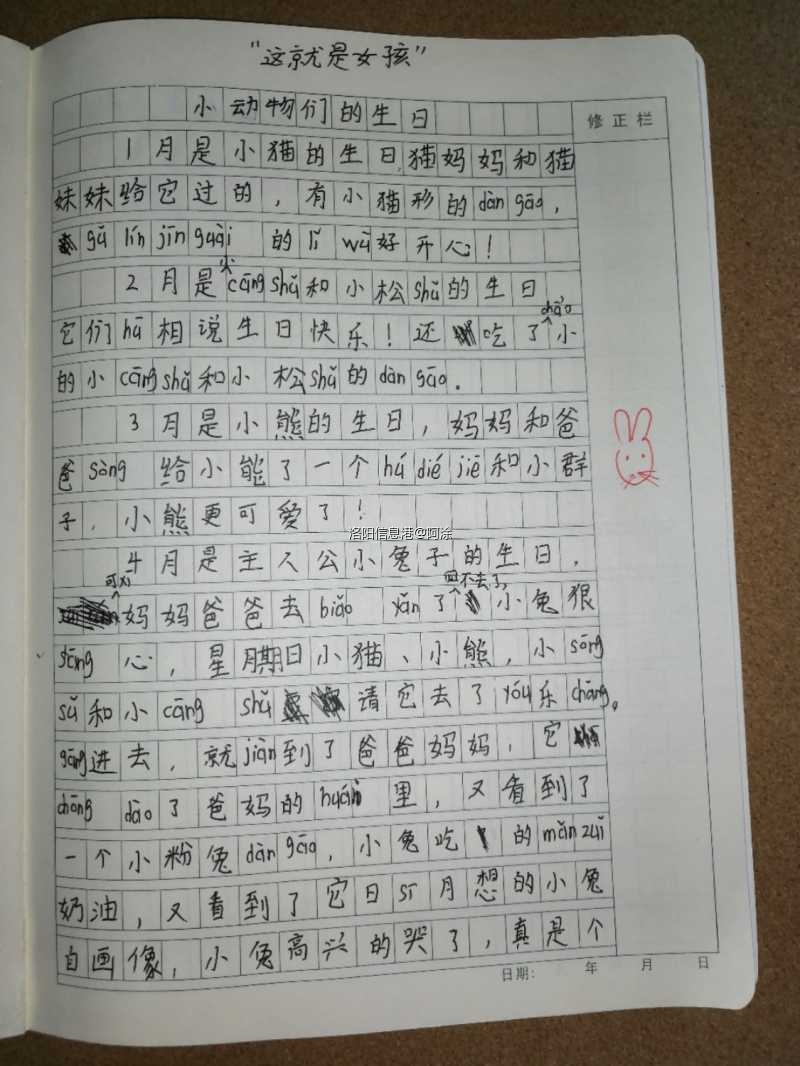 "这就是女孩"
小动物们的生日
修正栏
1月是小猫的生日,猫妈妈和猫
妹妹给它过的，有小猫形的dàn gāo，
gǔ lín jīn guài 的lǐ wù好开心！
2月是小cāng shǔ和小松shǔ的生日
它们hù相说生日快乐！还吃了chāo小
的小cāng shǔ和小松shǔ的dàn gāo.
3月是小熊的生日，妈妈和爸
爸sòng给小熊了一个hú dié jiē和小群
子，小熊更可爱了！
洛阳信息港@阿涂
4月是主人公小兔子的生日，
可以妈妈爸爸去biǎo yǎn了回不去了，小兔狠
sāng心，星月期日小猫、小熊，小sōng
sǔ和小cāng shǔ请它去了yóu乐chǎng。
gāng进去，就jiàn到了爸爸妈妈，它
chōng dào了爸妈的huái里，又看到了
一个小粉兔dàn gāo，小兔吃的mǎn zuǐ
奶油，又看到了它日sī月想的小兔
自画像，小兔高兴的哭了，真是个
日期： 年 月 日